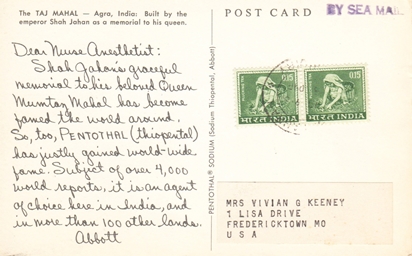 The TAJ MAHAL — Agra, India: Built by the
emperor Shah Jahan as a memorial to his queen.
Dear Nurse Anesthetist:
Shah Jahan's graceful
memorial to his beloved Queen
Mumtaz Mahal has become
famed the world around.
So, too, PENTOTHAL (thiopental)
has justly gained world-wide
fame. Subject of over 4,000
world reports, it is an agent
of choice here in India, and
in more than 100 other lands.
Abbott
PENTOTHAL® SODIUM (Sodium Thiopental, Abbott)
POST CARD
BY SEA MAIL
0.15
भारत INDIA
0.15
भारत INDIA
MRS VIVIAN G KEENEY
1 LISA DRIVE
FREDERICKTOWN MO
U S A